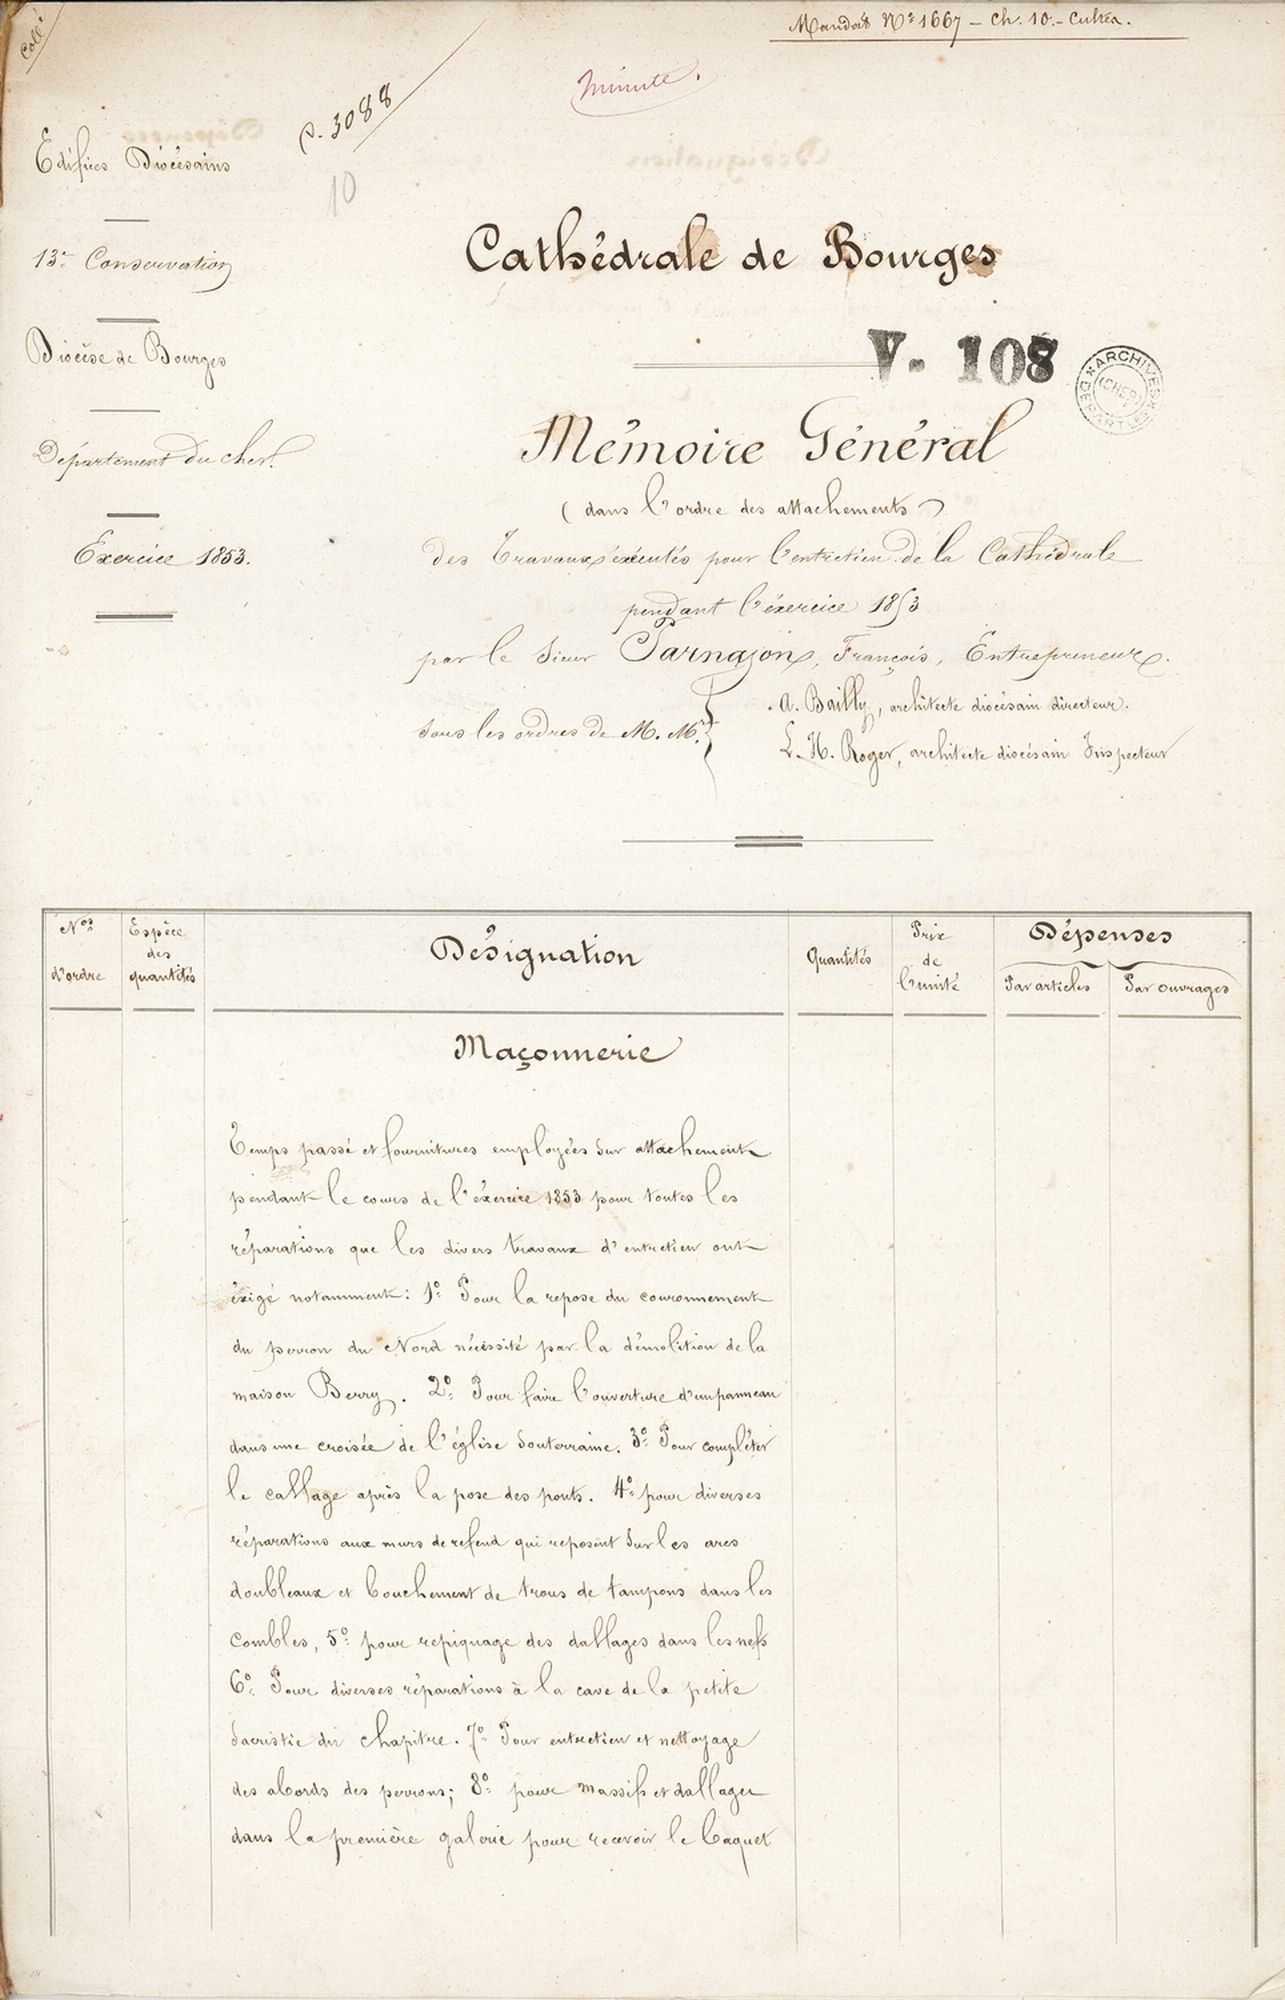 Collé
Mandat Nº 1667 - Ch. 10. - Cultes.
Minute.
P. 3088
10
Edifices Diocésains
13e Conservation
Diocèse de Bourges
Département du Cher.
Exercice 1853.
Cathédrale de Bourges
V. 108
ARCHIVES DÉPARTLES
CHER
Mémoire Général
(dans l'ordre des attachements)
des Travaux éxécutés pour l'entretien de la Cathédrale
pendant l'éxercice 1853
par le Sieur Parnajon, François, Entrepreneur.
sous les ordres de M. Mrs
A. Bailly, architecte diocésain directeur.
L. H. Roger, architecte diocésain Inspecteur
Nos d'ordre
Espèce des quantités
Désignation
Quantités
Prix de l'unité
Dépenses
Par articles
Par ouvrages
Maçonnerie
Temps passé et fournitures employées sur attachement
pendant le cours de l'éxercice 1853 pour toutes les
réparations que les divers travaux d'entretien ont
éxigé notamment: 1º Pour la repose du couronnement
du perron du Nord nécessité par la démolition de la
maison Berry. 2º Pour faire l'ouverture d'un panneau
dans une croisée de l'église souterraine. 3º Pour compléter
le callage après la pose des ponts. 4º pour diverses
réparations aux murs de refend qui reposent sur les arcs
doubleaux et bouchement de trous de tampons dans les
combles, 5º pour repiquage des dallages dans les nefs
6º Pour diverses réparations à la cave de la petite
sacristie du chapitre. 7º Pour entretien et nettoyage
des abords des perrons; 8º pour massifs et dallages
dans la première galerie pour recevoir le baquet